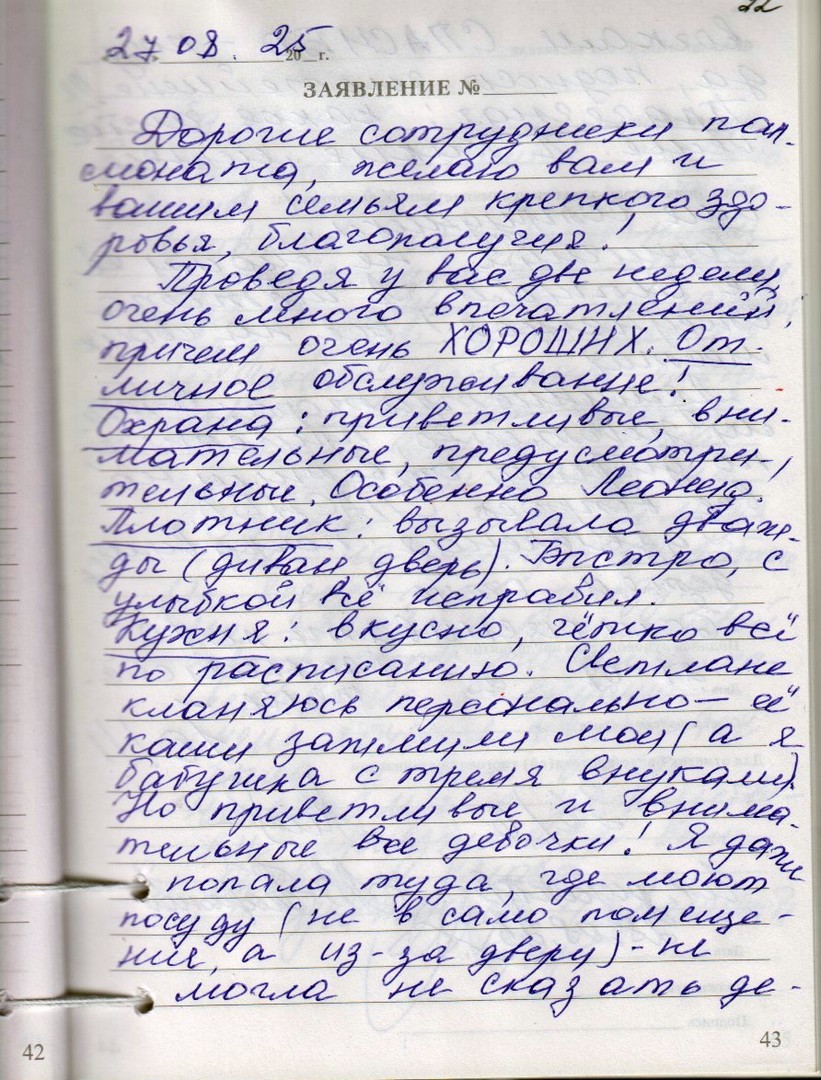 22
27 08. 2025 г.
ЗАЯВЛЕНИЕ №
Дорогие сотрудники пан-
сионата, желаю вам и
вашим семьям крепкого здо-
ровья, благополучия!
Проведя у вас две недели,
очень много впечатлений,
причем очень ХОРОШИХ. От-
личное обслуживание!
Охрана: приветливые, вни-
мательные, предусмотри-
тельные. Особенно Леонид!
Плотник: вызывала дваж-
ды (диван дверь). Быстро, с
улыбкой всё исправил.
Кухня: вкусно, чётко всё
по расписанию. Светлане
кланяюсь персонально – её
каши затмили мои (а я
бабушка с тремя внуками).
Но приветливые и внима-
тельные все девочки! Я даже
попала туда, где моют
посуду (не в само помеще-
ние, а из-за двери) - не
могла не сказать де-
42
43